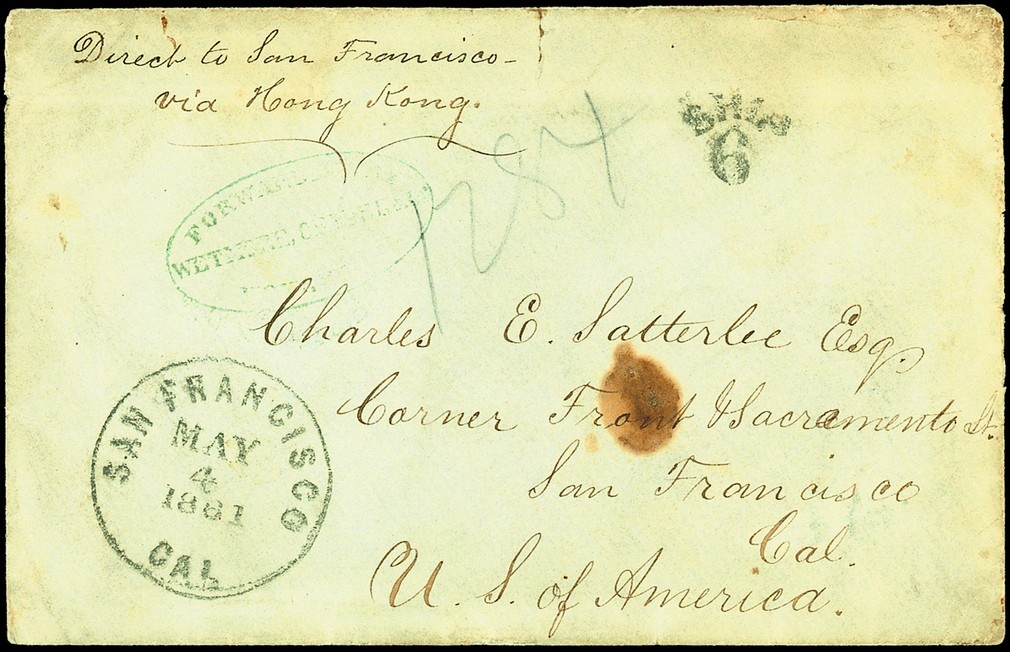 Direct to San Francisco-
via Hong Kong.
SHIP
6
1284
FORWARDED
WETMORE,
Charles E. Satterlee Esq.
Corner Front & Sacramento St.
San Francisco
Cal.
U. S. of America.
SAN FRANCISCO
MAY
4
1881
CAL